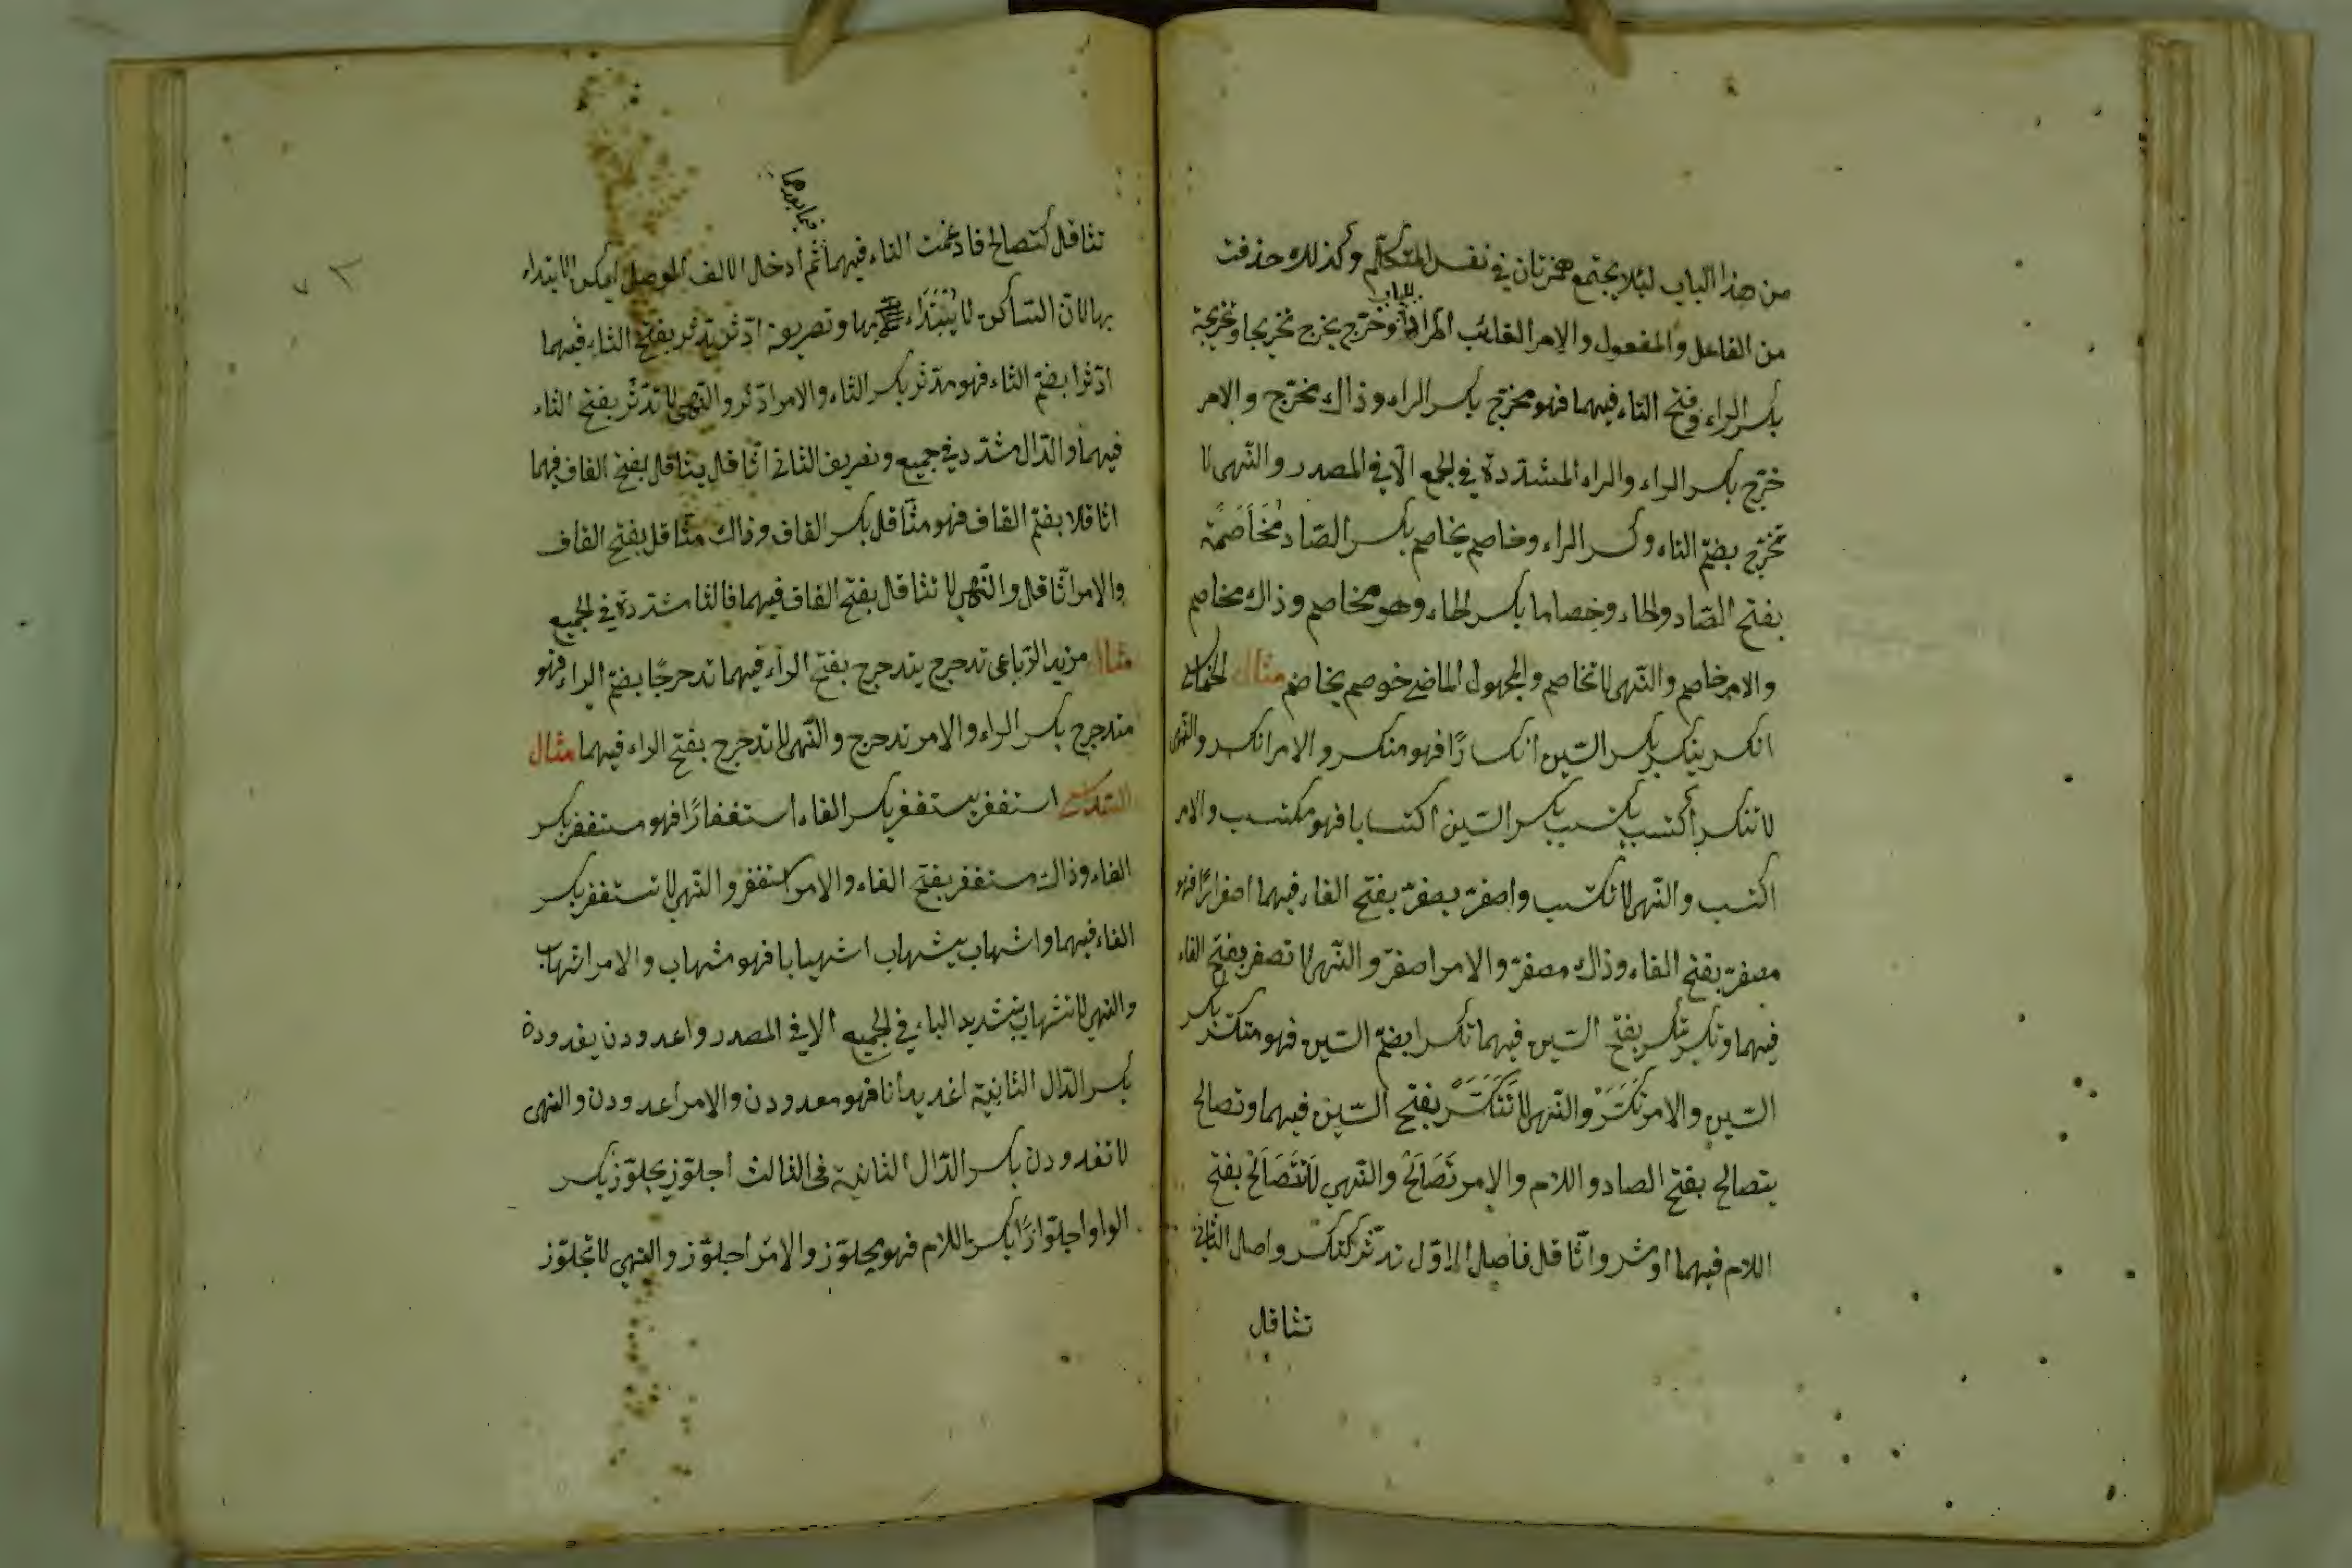 من هذا الباب لئلا يجتمع همزتان في نفس المتكلم وكذلك حذفت
من الفاعل والمفعول والامر الغائب وخرّج يخرج تخريجا وتخرجة
بكسر الراء وفتح التاء فيهما فهو مخرّج بكسر الراء وذاك مخرّج والامر
خرّج بكسر الراء والراء المشدّدة في الجمع الّا في المصدر والنّهى لا
تخرّج بضمّ التاء وكسر الراء وخاصم يخاصم بكسر الصّاد مُخَاصَمَة
بفتح الصّاد والخاء وخصاما بكسر الخاء وهو مخاصم وذاك مخاصم
والامر خاصم والنّهى لا تخاصم والمجهول الماضي خوصم يخاصم مثال الخماسي
انكسر ينكسر بكسر السّين انكسارًا فهو منكسر والامر انكسر والنّهى
لا تنكسر اكتسب يكتسب بكسر السّين اكتسابا فهو مكتسب والامر
اكتسب والنّهى لا تكتسب واصفرّ يصفرّ بفتح الفاء فيهما اصفرارًا فهو
مصفرّ بفتح الفاء وذاك مصفرّ والامر اصفرّ والنّهى لا تصفر بفتح الفاء
فيهما وتكسّر يتكسّر بفتح السّين فيهما تكسرا بضمّ السّين فهو متكسّر بكسر
السّين والامر تَكَسَّرْ والنّهى لا تَتَكَسَّرْ بفتح السّين فيهما وتصالح
يتصالح بفتح الصاد واللام والامر تَصَالَحْ والنّهي لا تَتَصَالَحْ بفتح
اللام فيهما وادّثر واثّاقل فاصل الاوّل تدثّر كتكسّر واصل الثاني
تثاقل
تثاقل كتصالح فادغمت التاء فيهما ثم ادخال الالف الوصل ليمكن الابتداء
فيما بعدهما
بها لان السّاكن لا يُبْتَدَاء بها وتصريف ادّثر يدثر بفتح الثاء فيهما
ادّثرا بضمّ الثاء فهو مدّثر بكسر الثاء والامر ادّثر والنّهى لا تدّثر بفتح الثاء
فيهما والدّال مشدّد في جميع وتصريف الثاني اثّاقل يثاقل بفتح القاف فيهما
اثاقلا بضمّ القاف فهو مثّاقل بكسر القاف وذاك مثّاقل بفتح القاف
والامر اثّاقل والنّهي لا تثاقل بفتح القاف فيهما فالثا مشدّدة في الجميع
مثال مزيد الرّباعى تدحرج يتدحرج بفتح الراء فيهما تدحرجًا بضمّ الراء فهو
متدحرج بكسر الراء والامر تدحرج والنّهى لا تدحرج بفتح الراء فيهما مثال
السّداسي استغفر يستغفر بكسر الفاء استغفارًا فهو مستغفر بكسر
الفاء وذاك مستغفر بفتح الفاء والامر استغفر والنّهى لا تستغفر بكسر
الفاء فيهما واشهاب يشهاب اشهيبابا فهو مشهاب والامر اشهاب
والنهي لا تشهاب بتشديد الباء في الجميع الا في المصدر واغدودن يغدودن
بكسر الدّال الثانية اغديدانا فهو مغدودن والامر اغدودن والنهى
لا تغدودن بكسر الدّال الثانية في الثالث اجلوّز يجلوّز بكسر
الواو اجلوّازًا بكسر اللام فهو مجلوّز والامر اجلوّز والنهي لا تجلوّز